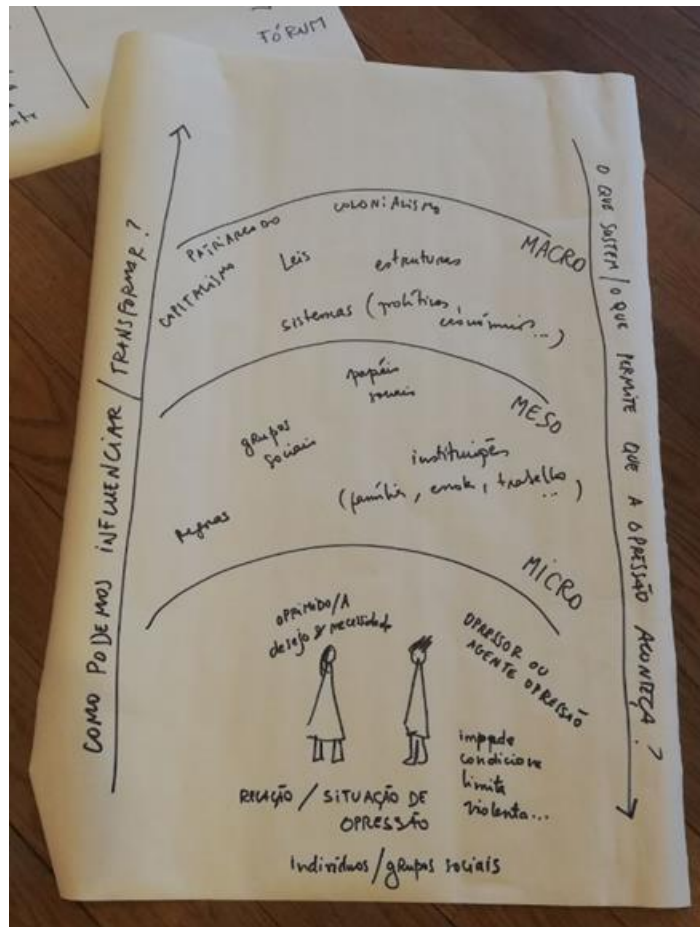 FÓRUM
COMO PODEMOS INFLUENCIAR / TRANSFORMAR?
O QUE SUSTEM / O QUE PERMITE QUE A OPRESSÃO ACONTEÇA?
COLONIALISMO
PATRIARCADO
CAPITALISMO
MACRO
Leis
estruturas
sistemas (políticos,
económicos...)
papéis
sociais
MESO
grupos
sociais
instituições
(família, escola, trabalho
...)
regras
MICRO
OPRIMIDO/A
desejo & necessidade
OPRESSOR OU
AGENTE OPRESSÃO
impede
condiciona
limita
violenta...
RELAÇÃO / SITUAÇÃO DE
OPRESSÃO
Indivíduos / grupos sociais